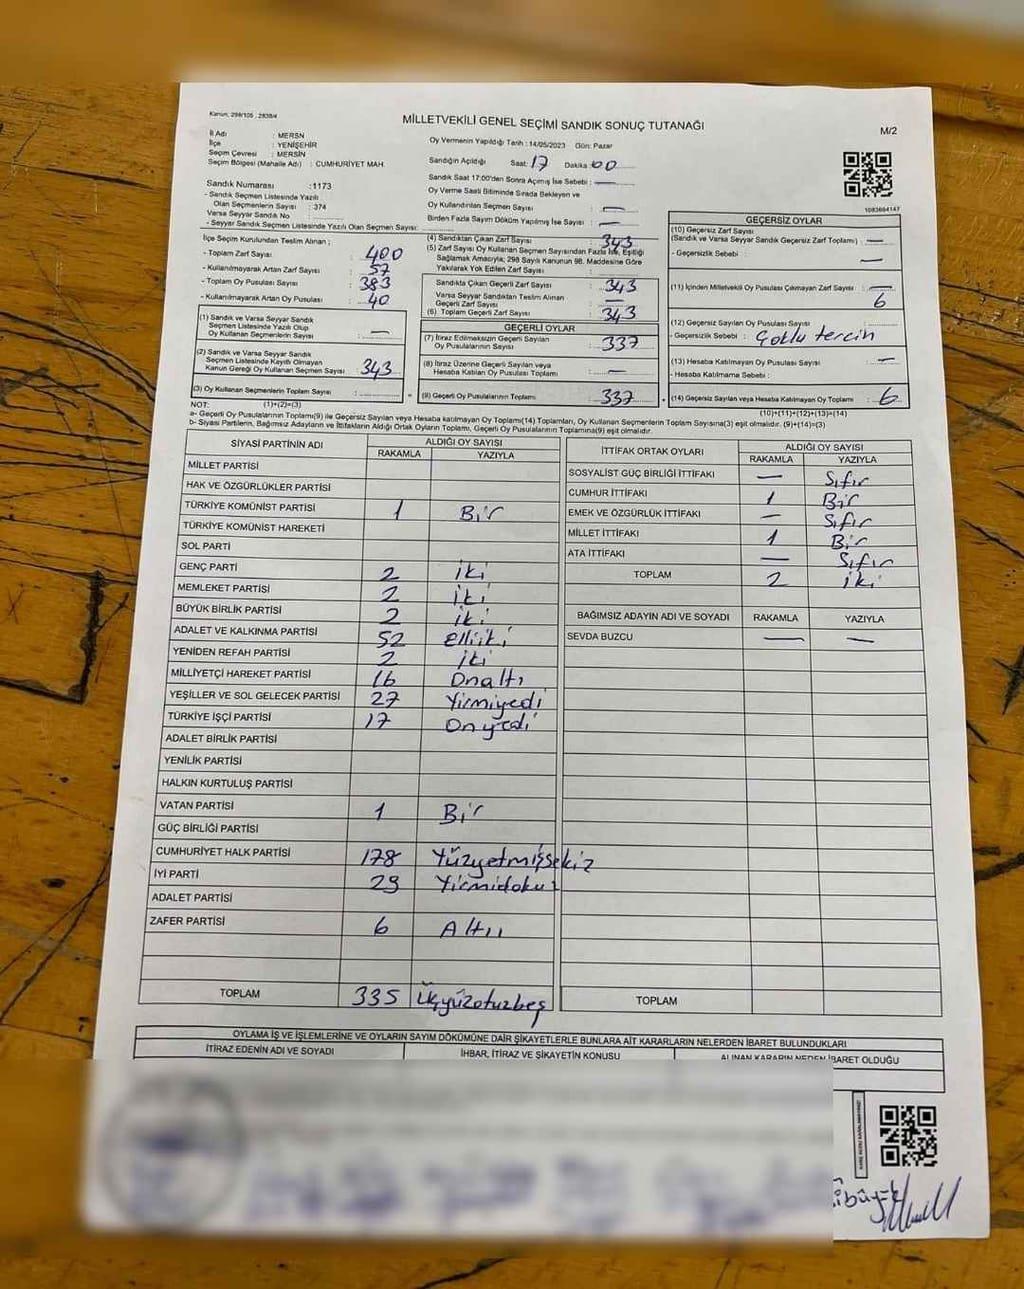 Kanun, 298/105 , 2839/4
MİLLETVEKİLİ GENEL SEÇİMİ SANDIK SONUÇ TUTANAĞI
M/2
İl Adı : MERSN
İlçe : YENİŞEHİR
Seçim Çevresi : MERSİN
Seçim Bölgesi (Mahalle Adı) : CUMHURİYET MAH.
Oy Vermenin Yapıldığı Tarih : 14/05/2023 Gün: Pazar
Sandığın Açıldığı Saat: 17 Dakika 00
Sandık Saat 17:00'den Sonra Açımış İse Sebebi : —
Oy Verme Saati Bitiminde Sırada Bekleyen ve
Oy Kullandırılan Seçmen Sayısı : —
Birden Fazla Sayım Döküm Yapılmış İse Sayısı : —
Sandık Numarası : 1173
- Sandık Seçmen Listesinde Yazılı
Olan Seçmenlerin Sayısı : 374
Varsa Seyyar Sandık No :
- Seyyar Sandık Seçmen Listesinde Yazılı Olan Seçmen Sayısı:
1083604147
İlçe Seçim Kurulundan Teslim Alınan ;
- Toplam Zarf Sayısı : 400
- Kullanılmayarak Artan Zarf Sayısı : 57
- Toplam Oy Pusulası Sayısı : 383
- Kullanılmayarak Artan Oy Pusulası : 40
(1) Sandık ve Varsa Seyyar Sandık
Seçmen Listesinde Yazılı Olup
Oy Kullanan Seçmenlerin Sayısı : —
(2) Sandık ve Varsa Seyyar Sandık
Seçmen Listesinde Kayıtlı Olmayan
Kanun Gereği Oy Kullanan Seçmen Sayısı : 343
(3) Oy Kullanan Seçmenlerin Toplam Sayısı :
(4) Sandıktan Çıkan Zarf Sayısı : 343
(5) Zarf Sayısı Oy Kullanan Seçmen Sayısından Fazla İse, Eşitliği
Sağlamak Amacıyla; 298 Sayılı Kanunun 98. Maddesine Göre
Yakılarak Yok Edilen Zarf Sayısı :
Sandıkta Çıkan Geçerli Zarf Sayısı : 343
Varsa Seyyar Sandıktan Teslim Alınan
Geçerli Zarf Sayısı : —
(6) Toplam Geçerli Zarf Sayısı : 343
GEÇERLİ OYLAR
(7) İtiraz Edilmeksizin Geçerli Sayılan
Oy Pusulalarının Sayısı : 337
(8) İtiraz Üzerine Geçerli Sayılan veya
Hesaba Katılan Oy Pusulası Toplamı : —
(9) Geçerli Oy Pusulalarının Toplamı : 337
GEÇERSİZ OYLAR
(10) Geçersiz Zarf Sayısı
(Sandık ve Varsa Seyyar Sandık Geçersiz Zarf Toplamı) : —
- Geçersizlik Sebebi : —
(11) İçinden Milletvekili Oy Pusulası Çıkmayan Zarf Sayısı : —
6
(12) Geçersiz Sayılan Oy Pusulası Sayısı :
- Geçersizlik Sebebi : Çoklu tercih
(13) Hesaba Katılmayan Oy Pusulası Sayısı : —
- Hesaba Katılmama Sebebi :
(14) Geçersiz Sayılan veya Hesaba Katılmayan Oy Toplamı : 6
NOT: (1)+(2)=(3)
(10)+(11)+(12)+(13)=(14)
a- Geçerli Oy Pusulalarının Toplamı(9) ile Geçersiz Sayılan veya Hesaba katılmayan Oy Toplamı(14) Toplamları, Oy Kullanan Seçmenlerin Toplam Sayısına(3) eşit olmalıdır. (9)+(14)=(3)
b- Siyasi Partilerin, Bağımsız Adayların ve İttifakların Aldığı Ortak Oyların Toplamı, Geçerli Oy Pusulalarının Toplamına(9) eşit olmalıdır.
SİYASİ PARTİNİN ADI ALDIĞI OY SAYISI
RAKAMLA YAZIYLA
MİLLET PARTİSİ
HAK VE ÖZGÜRLÜKLER PARTİSİ
TÜRKİYE KOMÜNİST PARTİSİ 1 Bir
TÜRKİYE KOMÜNİST HAREKETİ
SOL PARTİ
GENÇ PARTİ 2 iki
MEMLEKET PARTİSİ 2 iki
BÜYÜK BİRLİK PARTİSİ 2 iki
ADALET VE KALKINMA PARTİSİ 52 Elliiki
YENİDEN REFAH PARTİSİ 2 iki
MİLLİYETÇİ HAREKET PARTİSİ 16 Onaltı
YEŞİLLER VE SOL GELECEK PARTİSİ 27 Yirmiyedi
TÜRKİYE İŞÇİ PARTİSİ 17 Onyedi
ADALET BİRLİK PARTİSİ
YENİLİK PARTİSİ
HALKIN KURTULUŞ PARTİSİ
VATAN PARTİSİ 1 Bir
GÜÇ BİRLİĞİ PARTİSİ
CUMHURİYET HALK PARTİSİ 178 Yüzyetmişsekiz
İYİ PARTİ 29 Yirmidokuz
ADALET PARTİSİ
ZAFER PARTİSİ 6 Altı
TOPLAM 335 Üçyüzotuzbeş
İTTİFAK ORTAK OYLARI ALDIĞI OY SAYISI
RAKAMLA YAZIYLA
SOSYALİST GÜÇ BİRLİĞİ İTTİFAKI — Sıfır
CUMHUR İTTİFAKI 1 Bir
EMEK VE ÖZGÜRLÜK İTTİFAKI — Sıfır
MİLLET İTTİFAKI 1 Bir
ATA İTTİFAKI — Sıfır
TOPLAM 2 iki
BAĞIMSIZ ADAYIN ADI VE SOYADI RAKAMLA YAZIYLA
SEVDA BUZCU — —
TOPLAM
OYLAMA İŞ VE İŞLEMLERİNE VE OYLARIN SAYIM DÖKÜMÜNE DAİR ŞİKAYETLERLE BUNLARA AİT KARARLARIN NELERDEN İBARET BULUNDUKLARI
İTİRAZ EDENİN ADI VE SOYADI İHBAR, İTİRAZ VE ŞİKAYETİN KONUSU ALINAN KARARIN NEDEN İBARET OLDUĞU